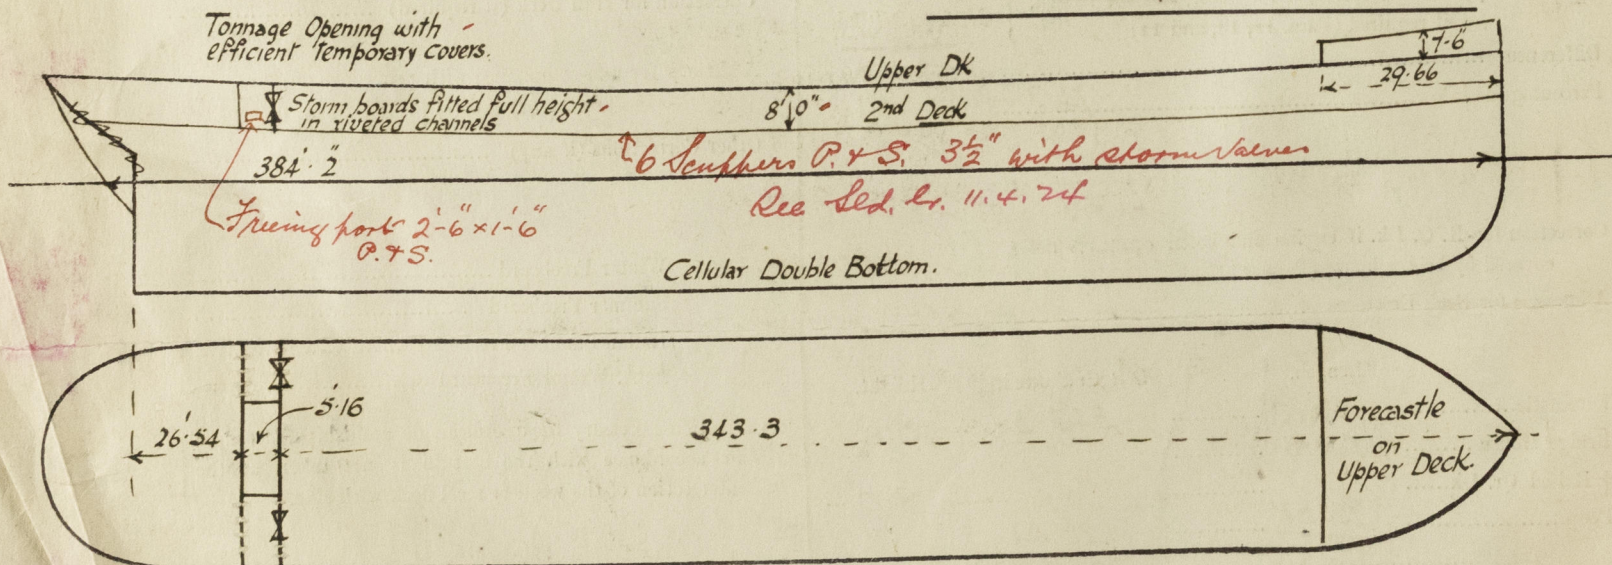 Tonnage Opening with
efficient Temporary Covers.
Upper Dk
7-6"
29.66
Storm boards fitted full height
in riveted channels
8' 0"
2nd Deck
384'. 2"
6 Scuppers P. & S. 3½" with storm valves
See Sld. lr. 11.4.24
Freeing port 2'-6" x 1'-6"
P. & S.
Cellular Double Bottom.
26'.54
5.16
343.3
Forecastle
on
Upper Deck.